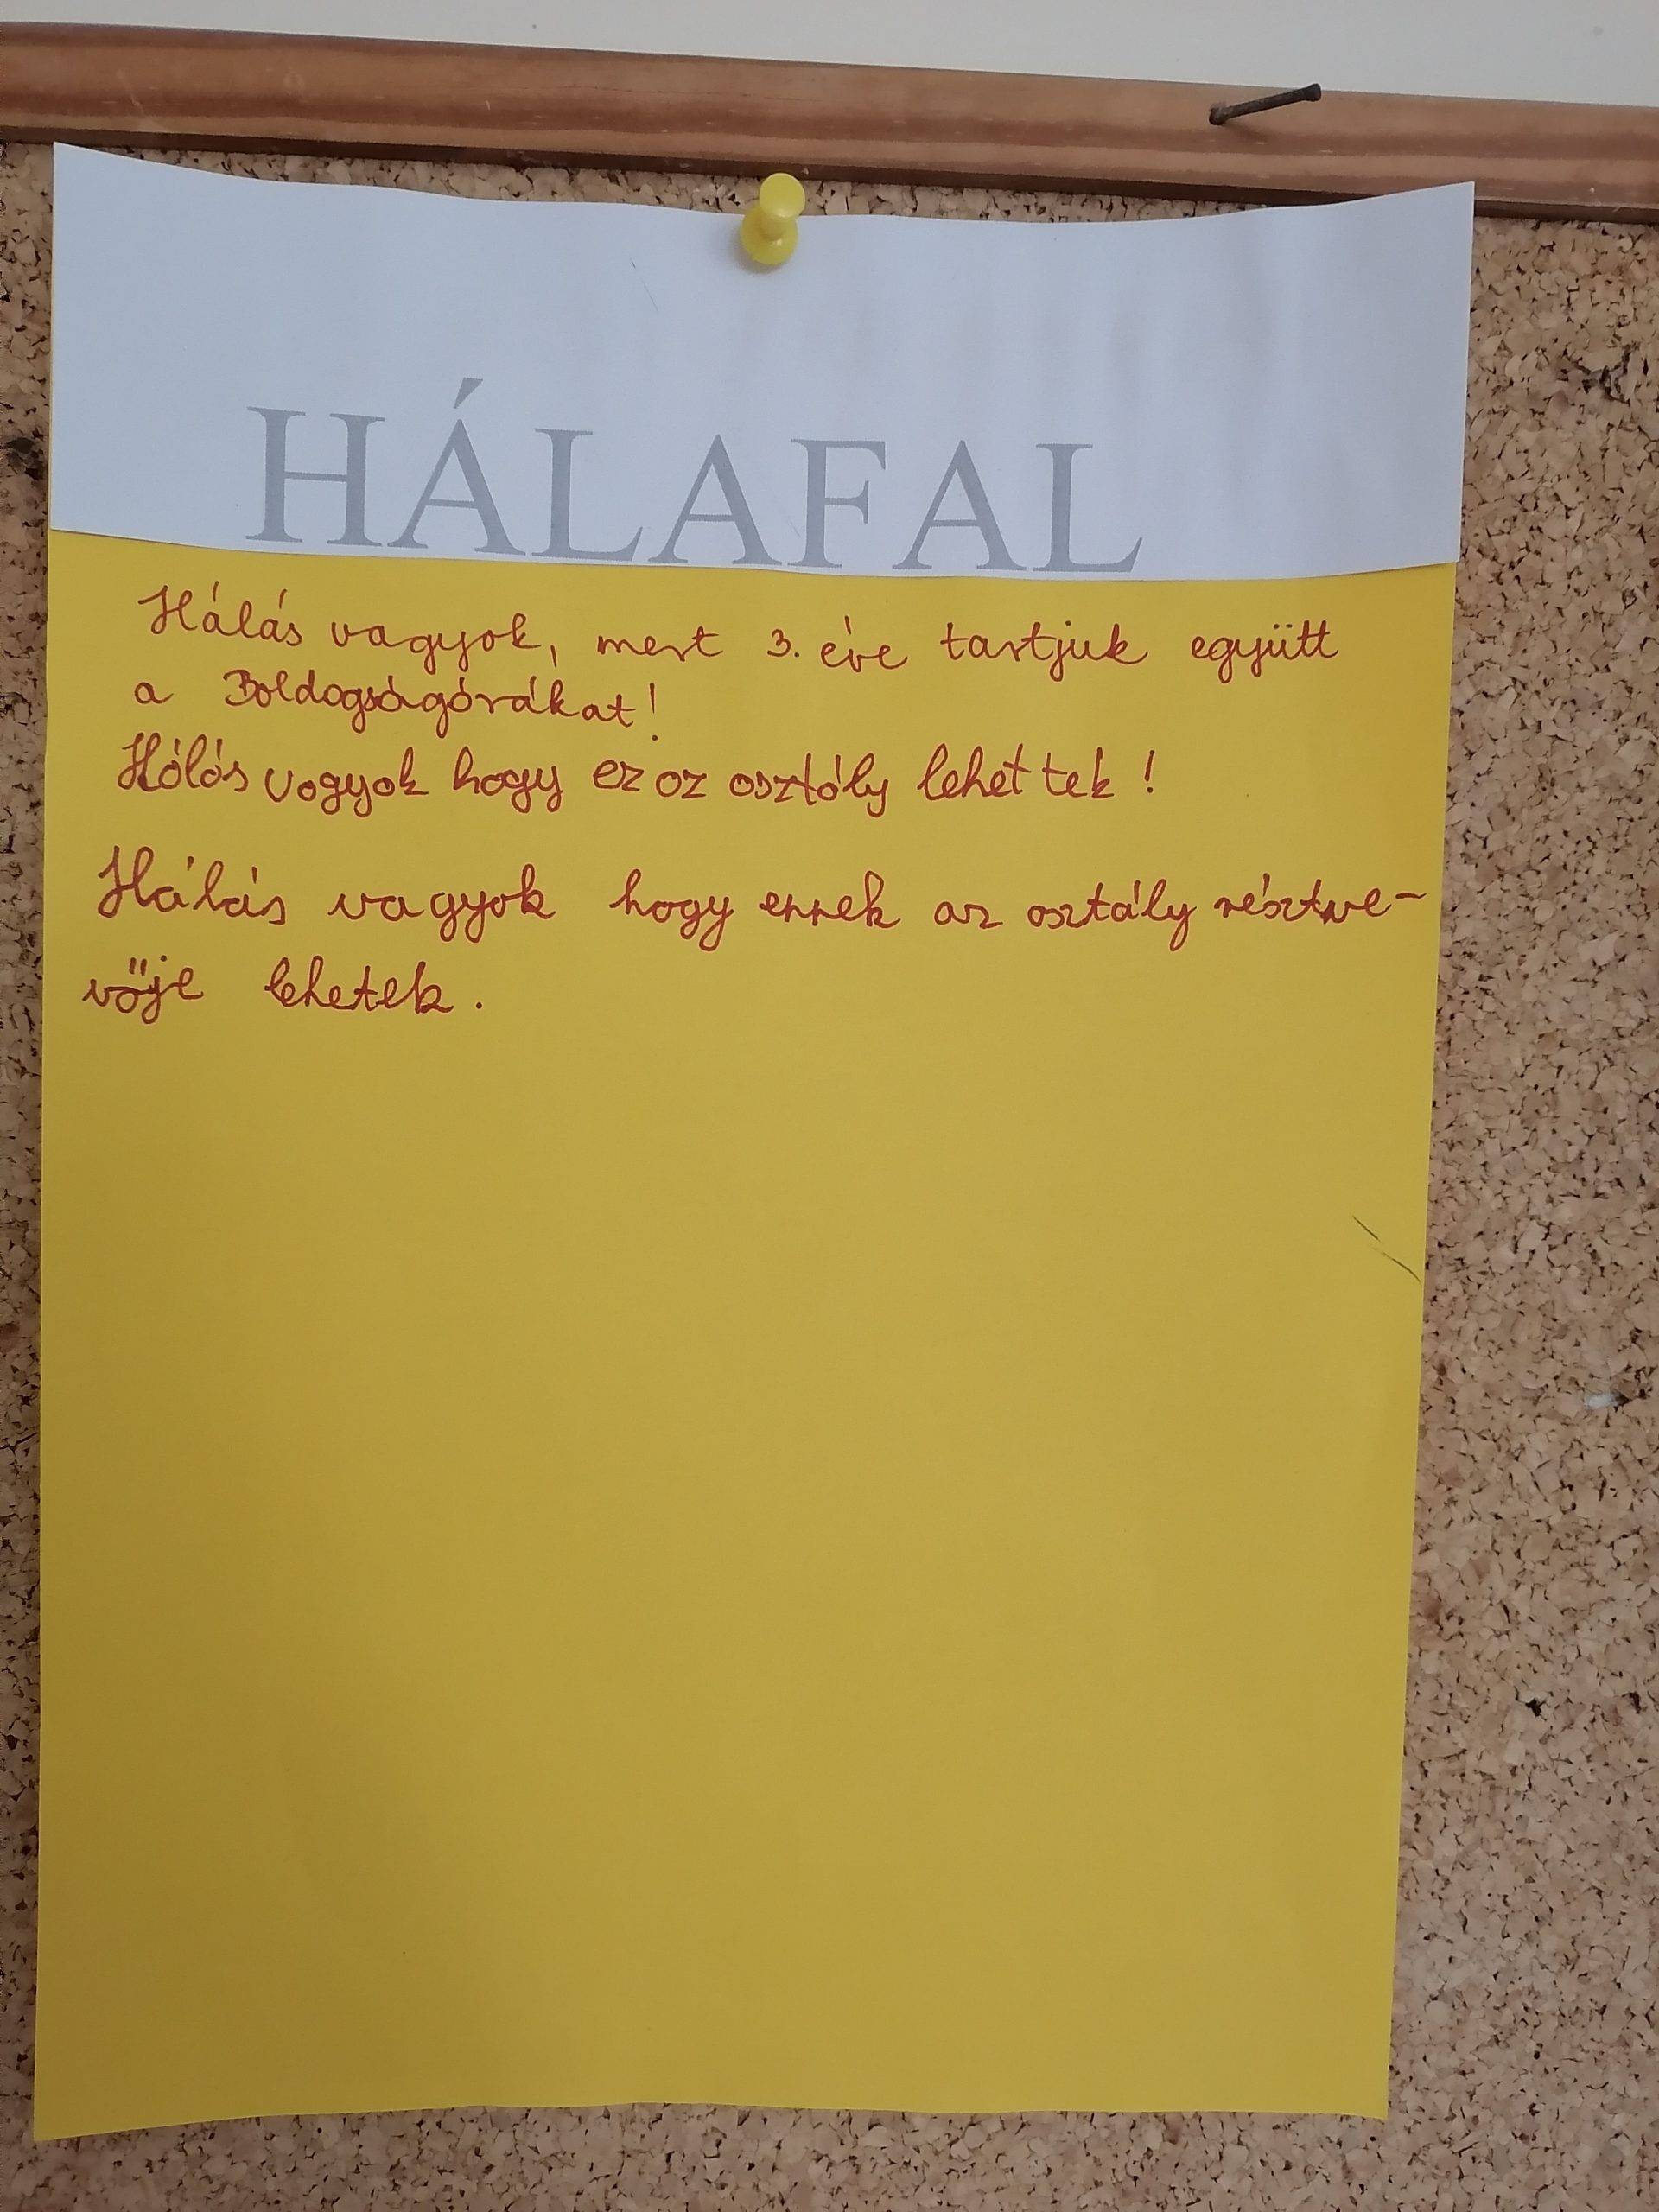 HÁLAFAL
Hálás vagyok, mert 3. éve tartjuk együtt
a Boldogságórákat!
Hálás vagyok hogy ez az osztály lehettek!
Hálás vagyok hogy ennek az osztály résztve-
vője lehetek.